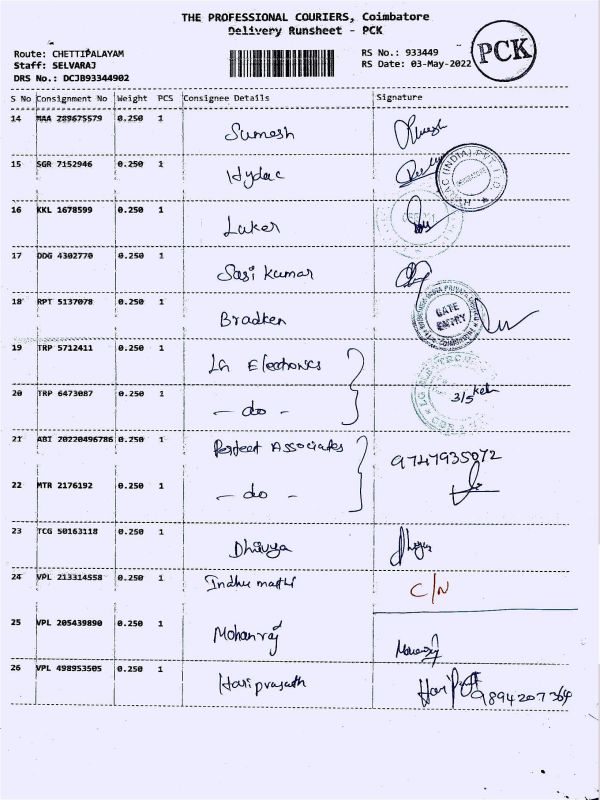 THE PROFESSIONAL COURIERS, Coimbatore
Delivery Runsheet - PCK
PCK
Route: CHETTIPALAYAM
Staff: SELVARAJ
DRS No.: DCJB93344902
RS No.: 933449
RS Date: 03-May-2022
S No Consignment No Weight PCS Consignee Details Signature
14 MAA 289675579 0.250 1 Sumesh
15 SGR 7152946 0.250 1 Hydac
16 KKL 1678599 0.250 1 Laker
17 DDG 4302770 0.250 1 Sasi kumar
18 RPT 5137078 0.250 1 Bradken
GATE
ENTRY
19 TRP 5712411 0.250 1 LG Electronics
20 TRP 6473087 0.250 1 - do - 3/5
21 ABI 20220496786 0.250 1 Perfect Associates 9747935072
22 MTR 2176192 0.250 1 - do -
23 TCG 50163118 0.250 1 Dhivya
24 VPL 213314558 0.250 1 Indhu mathi C/N
25 VPL 205439890 0.250 1 Mohanraj
26 VPL 498953505 0.250 1 Hariprasath 9894207364